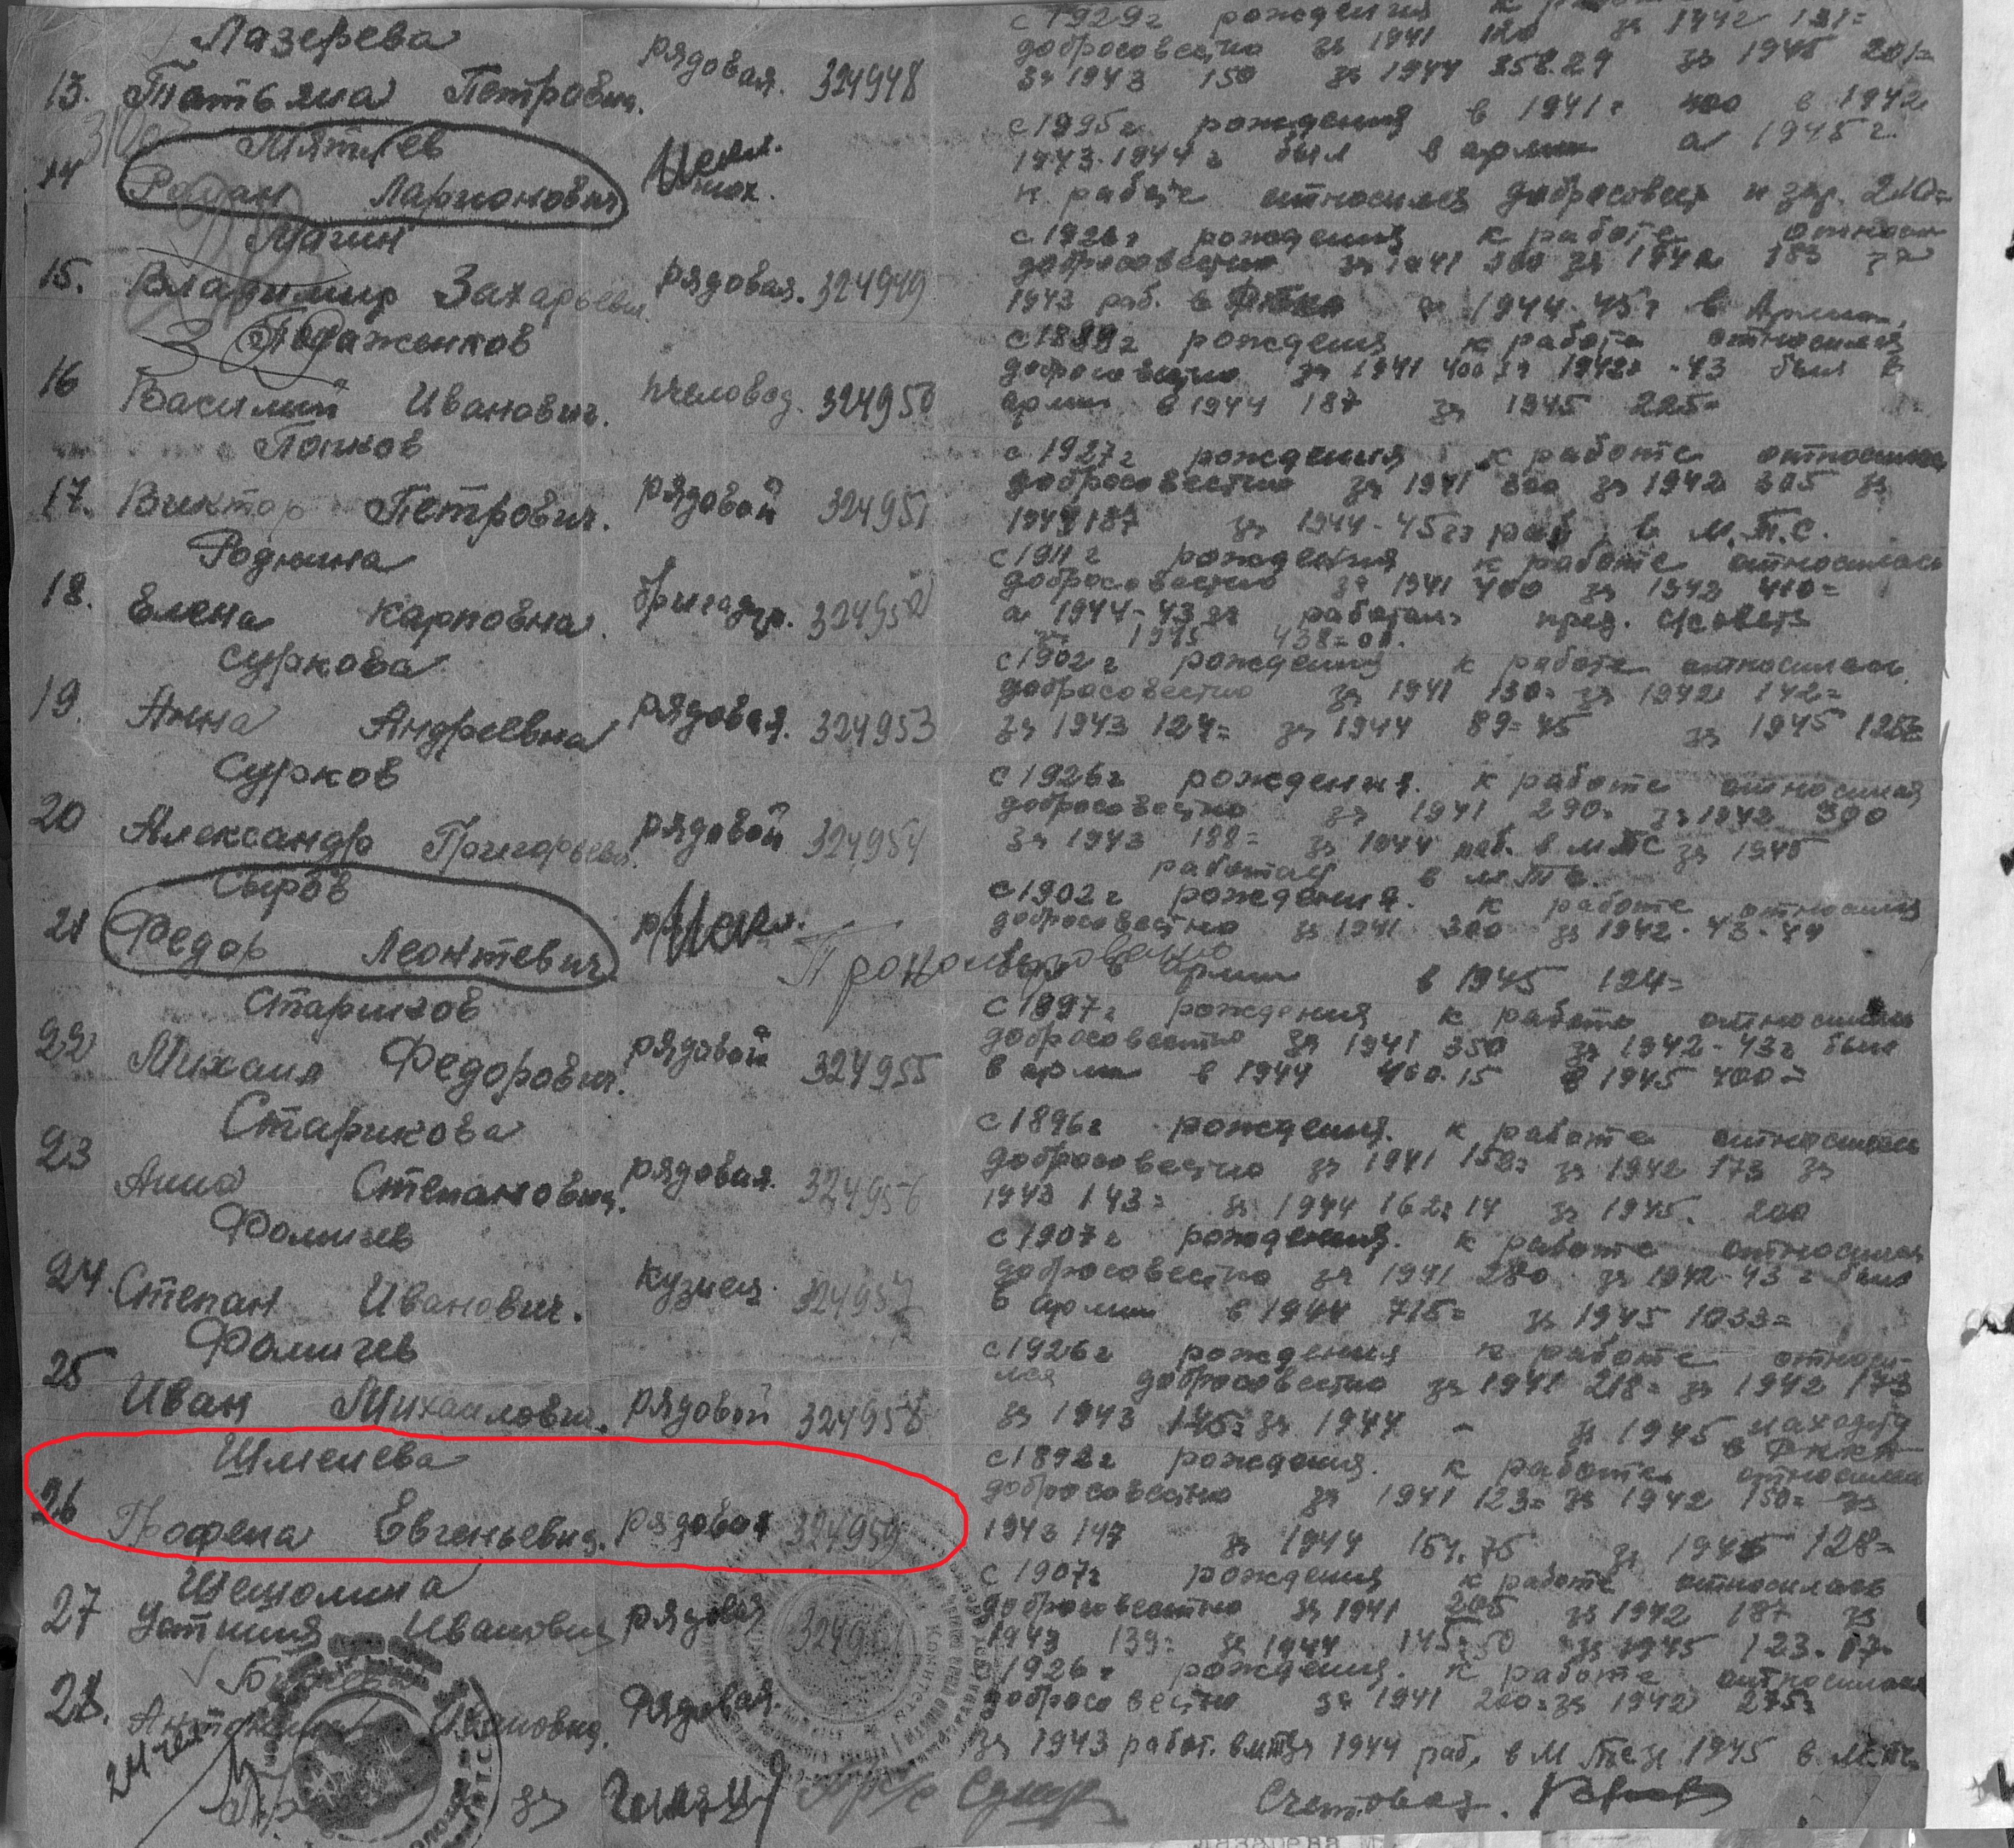 Лазерева
с 1929г рождения к работе
13. Татьяна Петровн. рядовая. 324948
добросовестно за 1941 120 за 1942 131=
за 1943 150 за 1944 358.29 за 1945 201=
Мятлев
14 Роман Ларионович
с 1895г рождения в 1941г 400 в 1942
1943.1944г был в армии а 1945г.
к работе относился добросовест и зар. 210=
Магин
15. Владимир Захарьевич рядовая. 324949
с 1926г рождения к работе относ
добросовестно за 1941 300 за 1942 183 за
1943 раб. в за 1944-45г в Армии.
Подаженков
16 Василий Иванович. пчеловод. 324950
с 1899г рождения к работе относился
добросовестно за 1941 400 за 1942г-43 был в
армии в 1944 187 за 1945 225=
Попков
17. Виктор Петрович. рядовой 324951
с 1927г рождения к работе относился
добросовестно за 1941 300 за 1942 305 за
1943 187 за 1944-45гг раб. в М.Т.С.
Роднина
18. Елена Карповна. бригадир. 324952
с 1911г рождения к работе относилась
добросовестно за 1941 400 за 1942 410=
а 1944-43гг работала пред. с/совета
за 1945 438=00.
Суркова
19. Анна Андреевна рядовая. 324953
с 1902г рождения к работе относилась
добросовестно за 1941 130= за 1942 142=
за 1943 124= за 1944 89=45 за 1945 125=
Сурков
20 Александр Григорьевич рядовой 324954
с 1926г рождения. к работе относился
добросовестно за 1941 290= за 1942 300
за 1943 188= за 1944 раб. в МТС за 1945
работал в МТС.
Сыров
21 Федор Леонтевич
с 1902г рождения. к работе относился
добросовестно за 1941 300 за 1942-43-44
был в армии в 1945 124=
Стариков
22 Михаил Федорович. рядовой 324955
с 1897г рождения к работе относился
добросовестно за 1941 350 за 1942-43г был
в армии в 1944 460.15 в 1945 400=
Старикова
23 Анна Степановна. рядовая. 324956
с 1896г рождения. к работе относилась
добросовестно за 1941 158= за 1942 173 за
1943 143= за 1944 162=14 за 1945. 200
Фомичев
24. Степан Иванович. кузнец. 324957
с 1907г рождения. к работе относился
добросовестно за 1941 280 за 1942-43г был
в армии в 1944 715= за 1945 1033=
Фомичев
25 Иван Михайлович. рядовой 324958
с 1926г рождения к работе относи-
лся добросовестно за 1941 218= за 1942 173
за 1943 145= за 1944 - за 1945 находит
в РККА
Шмелева
26 Грофена Евгеньевна. рядовая 324959
с 1892г рождения. к работе относилась
добросовестно за 1941 123= за 1942 150= за
1943 147 за 1944 154.75 за 1945 128=
Шешолина
27 Устиния Ивановна рядовая
с 1907г рождения к работе относилась
добросовестно за 1941 205 за 1942 187 за
1943 139= за 1944 145=50 за 1945 123.17-
28. Антонина Ивановна. рядовая.
с 1926г рождения. к работе относилась
добросовестно за 1941 200= за 1942 275=
за 1943 работ. в мтс за 1944 раб. в М Тс за 1945 в. М.тс.
24 чел
Счетовод.